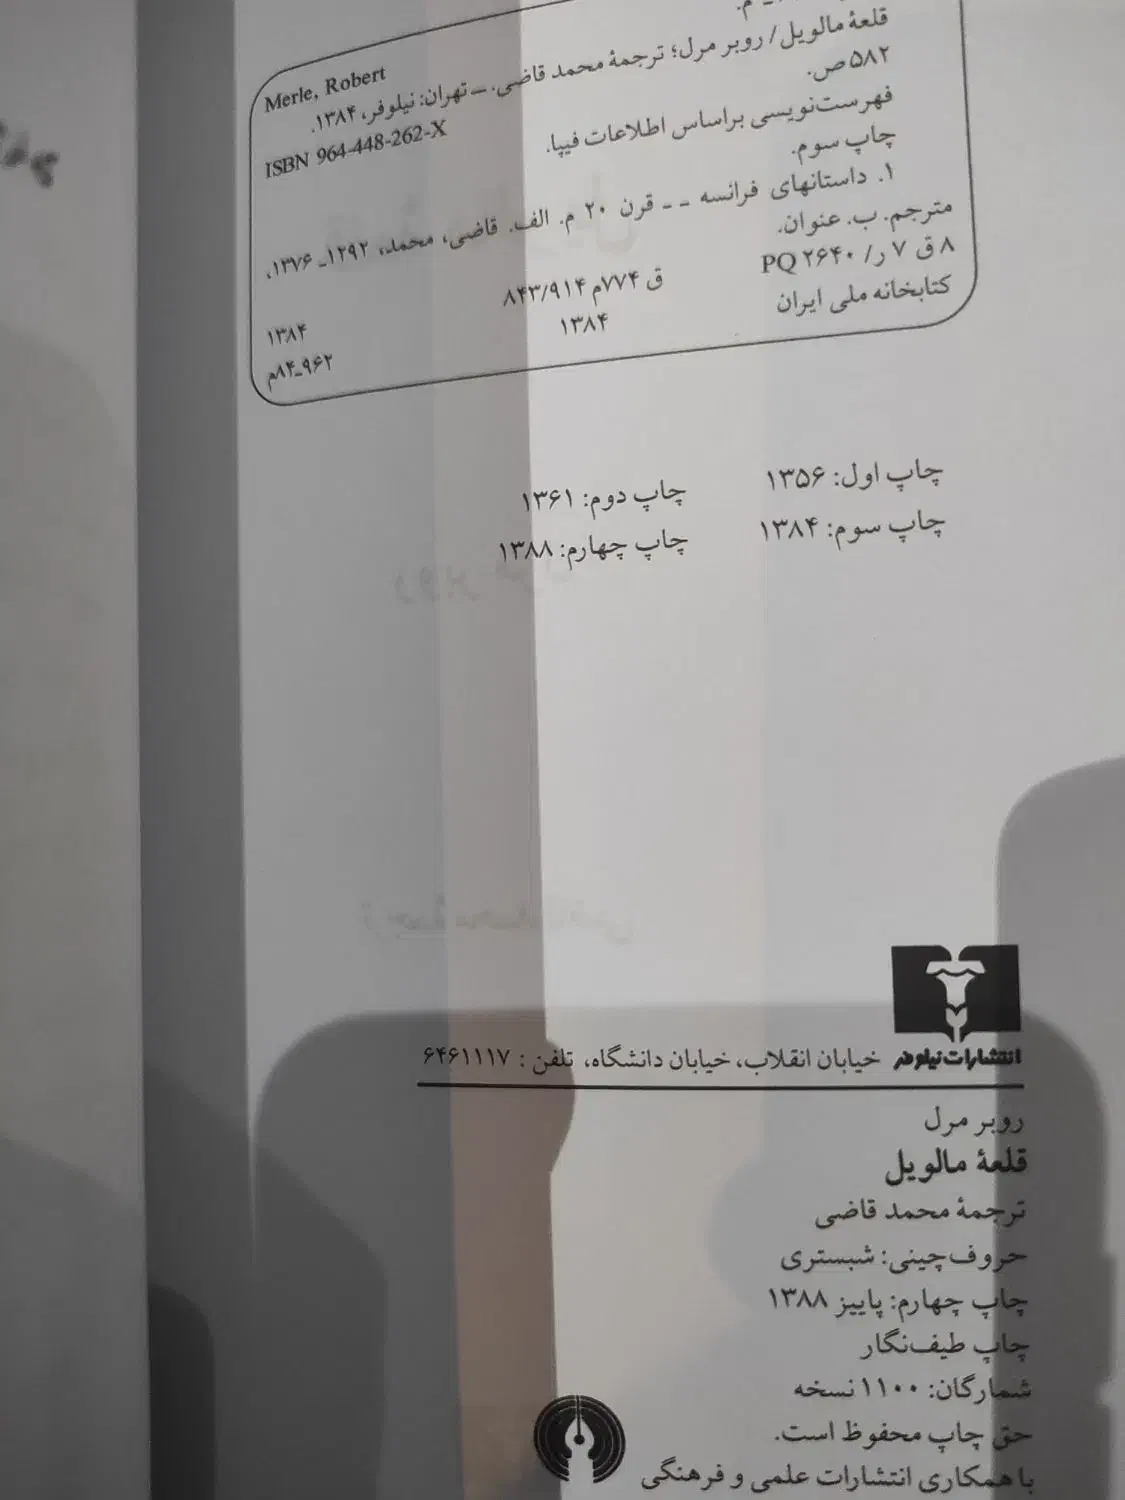 م.
Merle, Robert
قلعهٔ مالویل/ روبر مرل؛ ترجمهٔ محمد قاضی. ــ تهران: نیلوفر، ۱۳۸۴.
۵۸۲ ص.
ISBN 964-448-262-X
فهرست‌نویسی براساس اطلاعات فیپا.
چاپ سوم.
۱. داستانهای فرانسه ــ قرن ۲۰ م. الف. قاضی، محمد، ۱۲۹۲ـ ۱۳۷۶،
مترجم. ب. عنوان.
۸ ق ۷ ر/ PQ ۲۶۴۰
ق ۷۷۴م ۸۴۳/۹۱۴
۱۳۸۴
کتابخانه ملی ایران
۱۳۸۴
۹۶۲ـ۸۴م
چاپ اول: ۱۳۵۶ چاپ دوم: ۱۳۶۱
چاپ سوم: ۱۳۸۴ چاپ چهارم: ۱۳۸۸
انتشارات نیلوفر خیابان انقلاب، خیابان دانشگاه، تلفن : ۶۴۶۱۱۱۷
روبر مرل
قلعهٔ مالویل
ترجمهٔ محمد قاضی
حروف‌چینی: شبستری
چاپ چهارم: پاییز ۱۳۸۸
چاپ طیف‌نگار
شمارگان: ۱۱۰۰ نسخه
حق چاپ محفوظ است.
با همکاری انتشارات علمی و فرهنگی